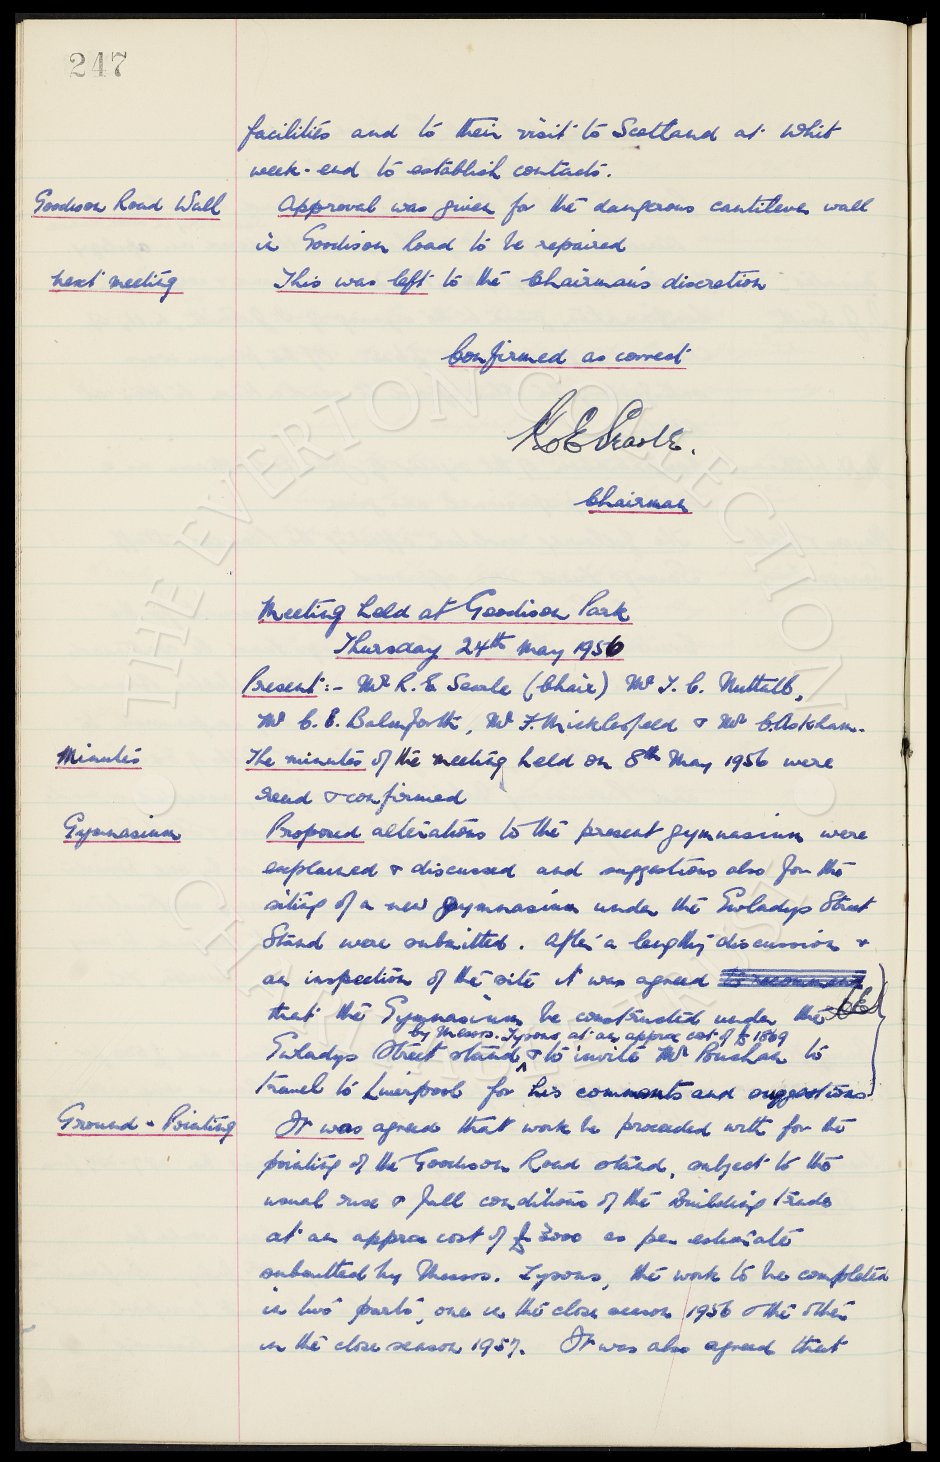 247
facilities and to their visit to Scotland at Whit
week-end to establish contacts.
Goodison Road Wall Approval was given for the dangerous cantilever wall
in Goodison Road to be repaired
next meeting This was left to the Chairman's discretion
Confirmed as correct
R E Searle.
Chairman
THE EVERTON COLLECTION
CHARITABLE TRUST
Meeting held at Goodison Park
Thursday 24th May 1956
Present:- Mr R. E Searle (Chair) Mr J. C. Nuttall,
Mr C. E. Balmforth, Mr F. Micklesfield & Mr C. Askham.
Minutes The minutes of the meeting held on 8th May 1956 were
read & confirmed
Gymnasium Proposed alterations to the present gymnasium were
explained & discussed and suggestions also for the
siting of a new gymnasium under the Gwladys Street
Stand were submitted. After a lengthy discussion &
an inspection of the site it was agreed to recommend
that the Gymnasium be constructed under the
by Messrs. Tysons, at an approx cost of £1869
Gwladys Street stand & to invite Mr to
travel to Liverpool for his comments and suggestions
Ground - Pointing It was agreed that work be proceeded with for the
pointing of the Goodison Road stand, subject to the
usual rise & fall conditions of the Building trade
at an approx cost of £3000 as per estimate
submitted by Messrs. Tysons, the work to be completed
in two parts, one in the close season 1956 & the other
in the close season 1957. It was also agreed that